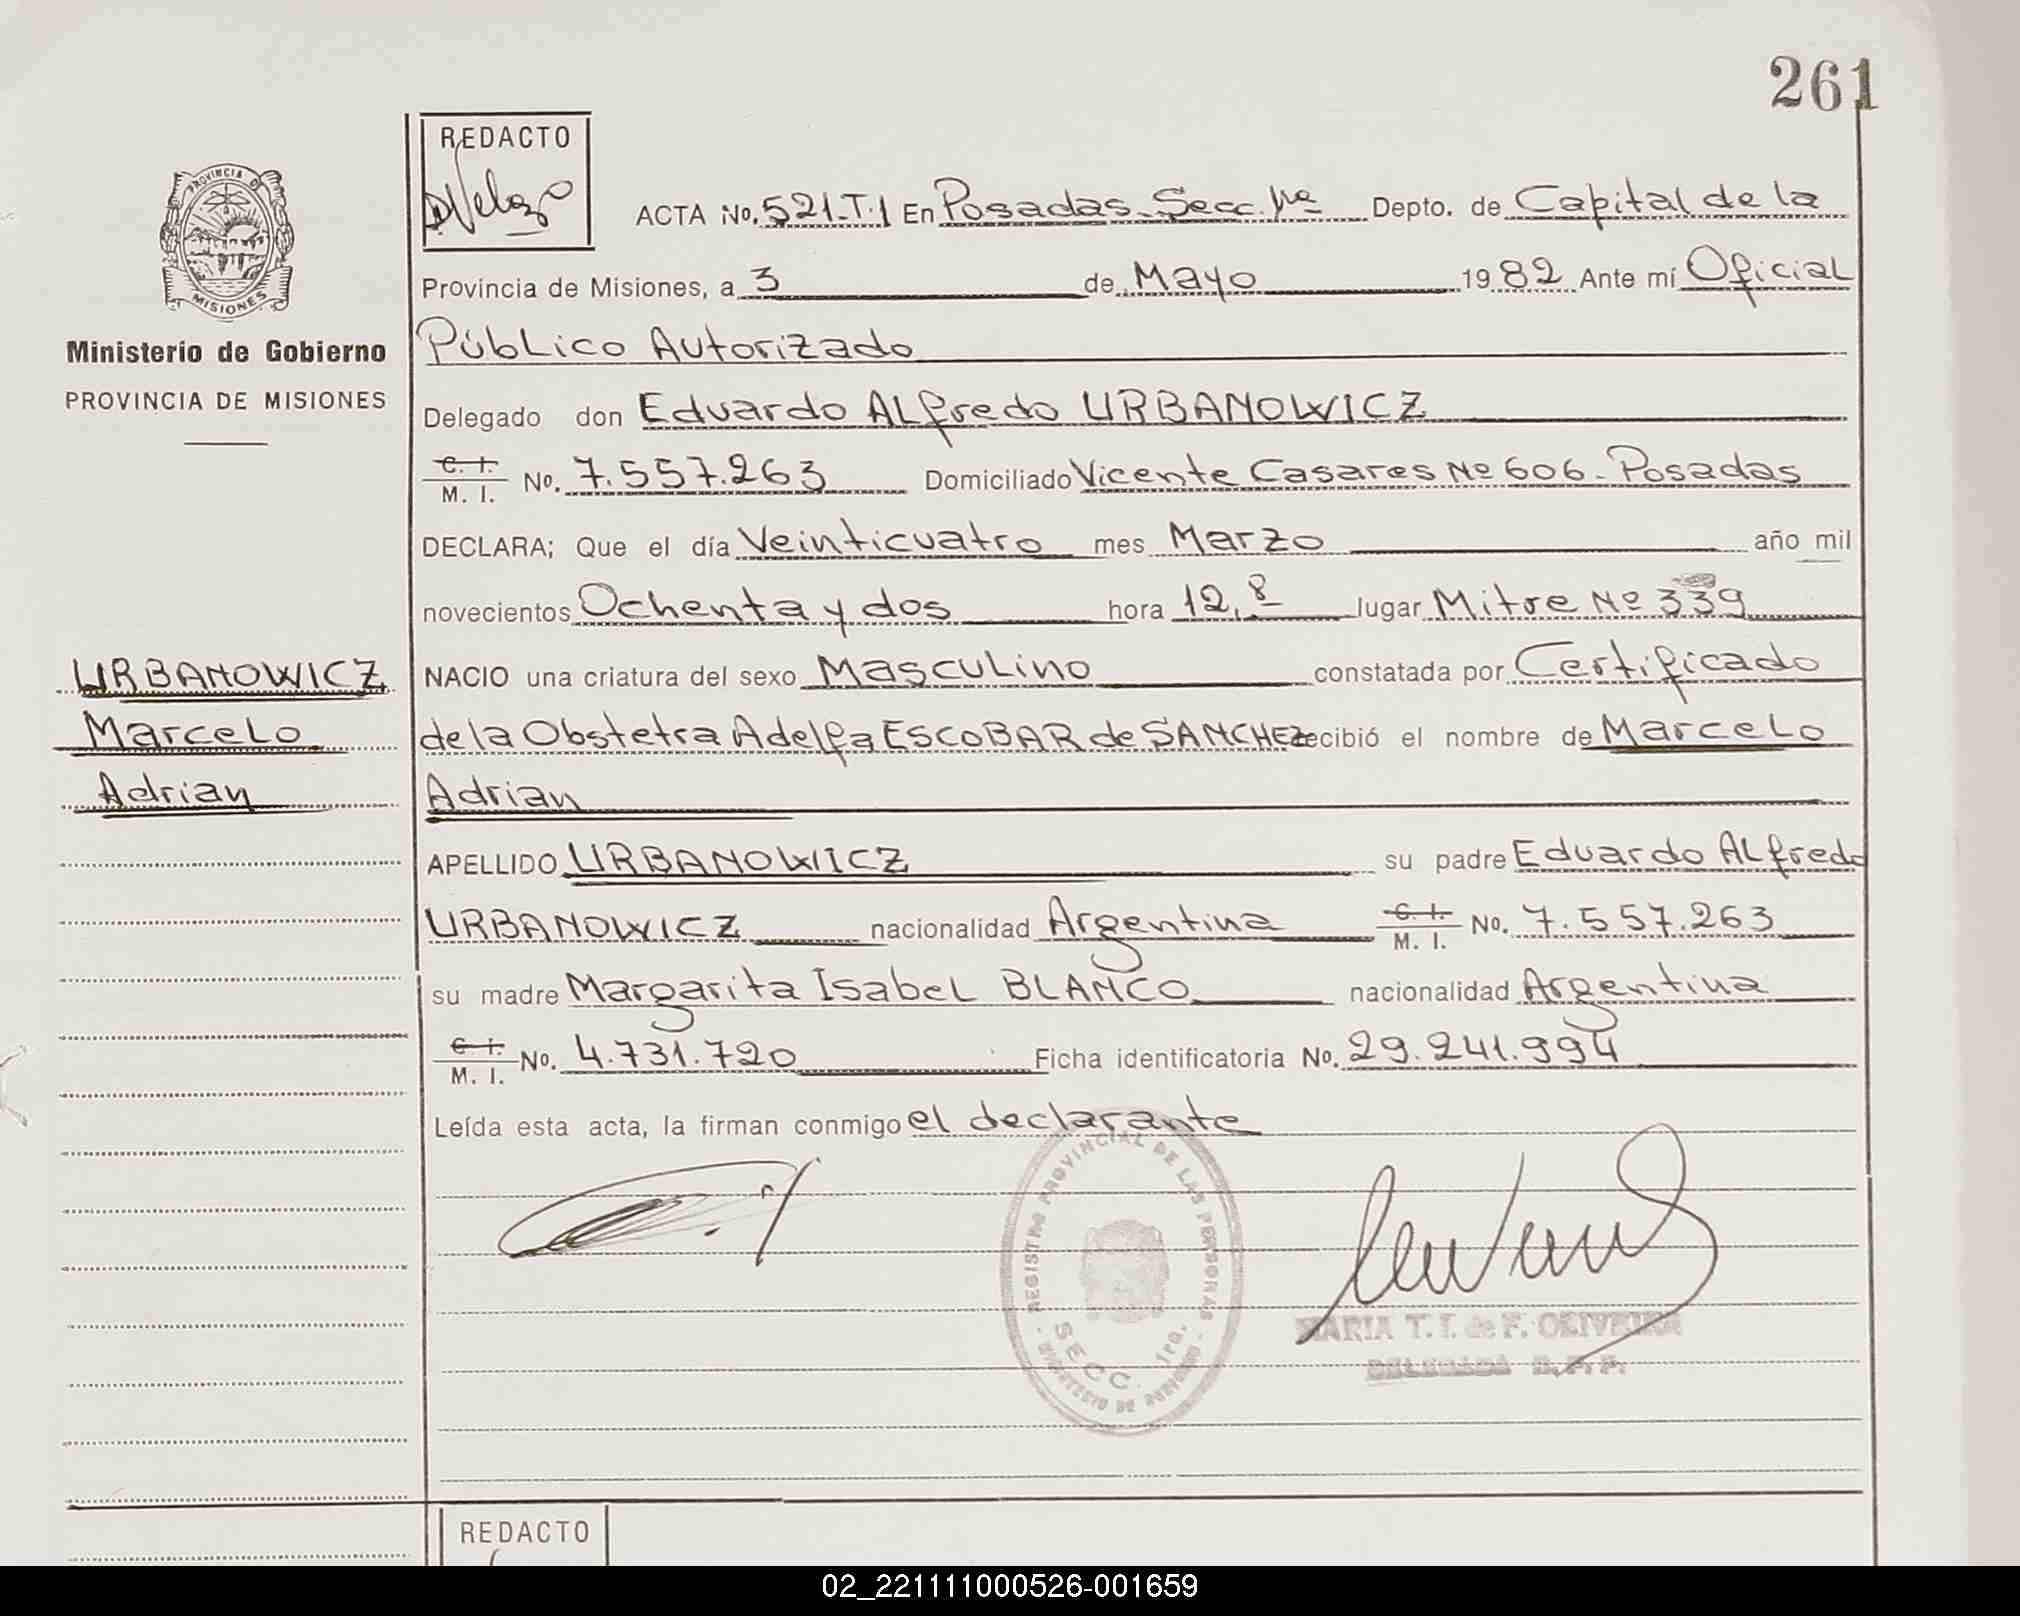 261
REDACTO
PROVINCIA DE
MISIONES
ACTA No. 521-T.I En Posadas-Secc. 1ra Depto. de Capital de la
Provincia de Misiones, a 3 de Mayo 1982 Ante mí Oficial
Público Autorizado
Ministerio de Gobierno
PROVINCIA DE MISIONES
Delegado don Eduardo Alfredo URBANOWICZ
C. I. M. I. No. 7.557.263 Domiciliado Vicente Casares Nº 606-Posadas
DECLARA; Que el día Veinticuatro mes Marzo año mil
novecientos Ochenta y dos hora 12,8 lugar Mitre Nº 339
URBANOWICZ
Marcelo
Adrian
NACIO una criatura del sexo Masculino constatada por Certificado
de la Obstetra Adelfa ESCOBAR de SANCHEZ recibió el nombre de Marcelo
Adrian
APELLIDO URBANOWICZ su padre Eduardo Alfredo
URBANOWICZ nacionalidad Argentina C. I. M. I. No. 7.557.263
su madre Margarita Isabel BLANCO nacionalidad Argentina
C. I. M. I. No. 4.731.720 Ficha identificatoria No. 29.241.994
Leída esta acta, la firman conmigo el declarante
REGISTRO PROVINCIAL DE LAS PERSONAS
SECC. 1ra.
MINISTERIO DE GOBIERNO
MARIA T. I. de F. OLIVEIRA
DELEGADA R. P. P.
REDACTO
02_221111000526-001659